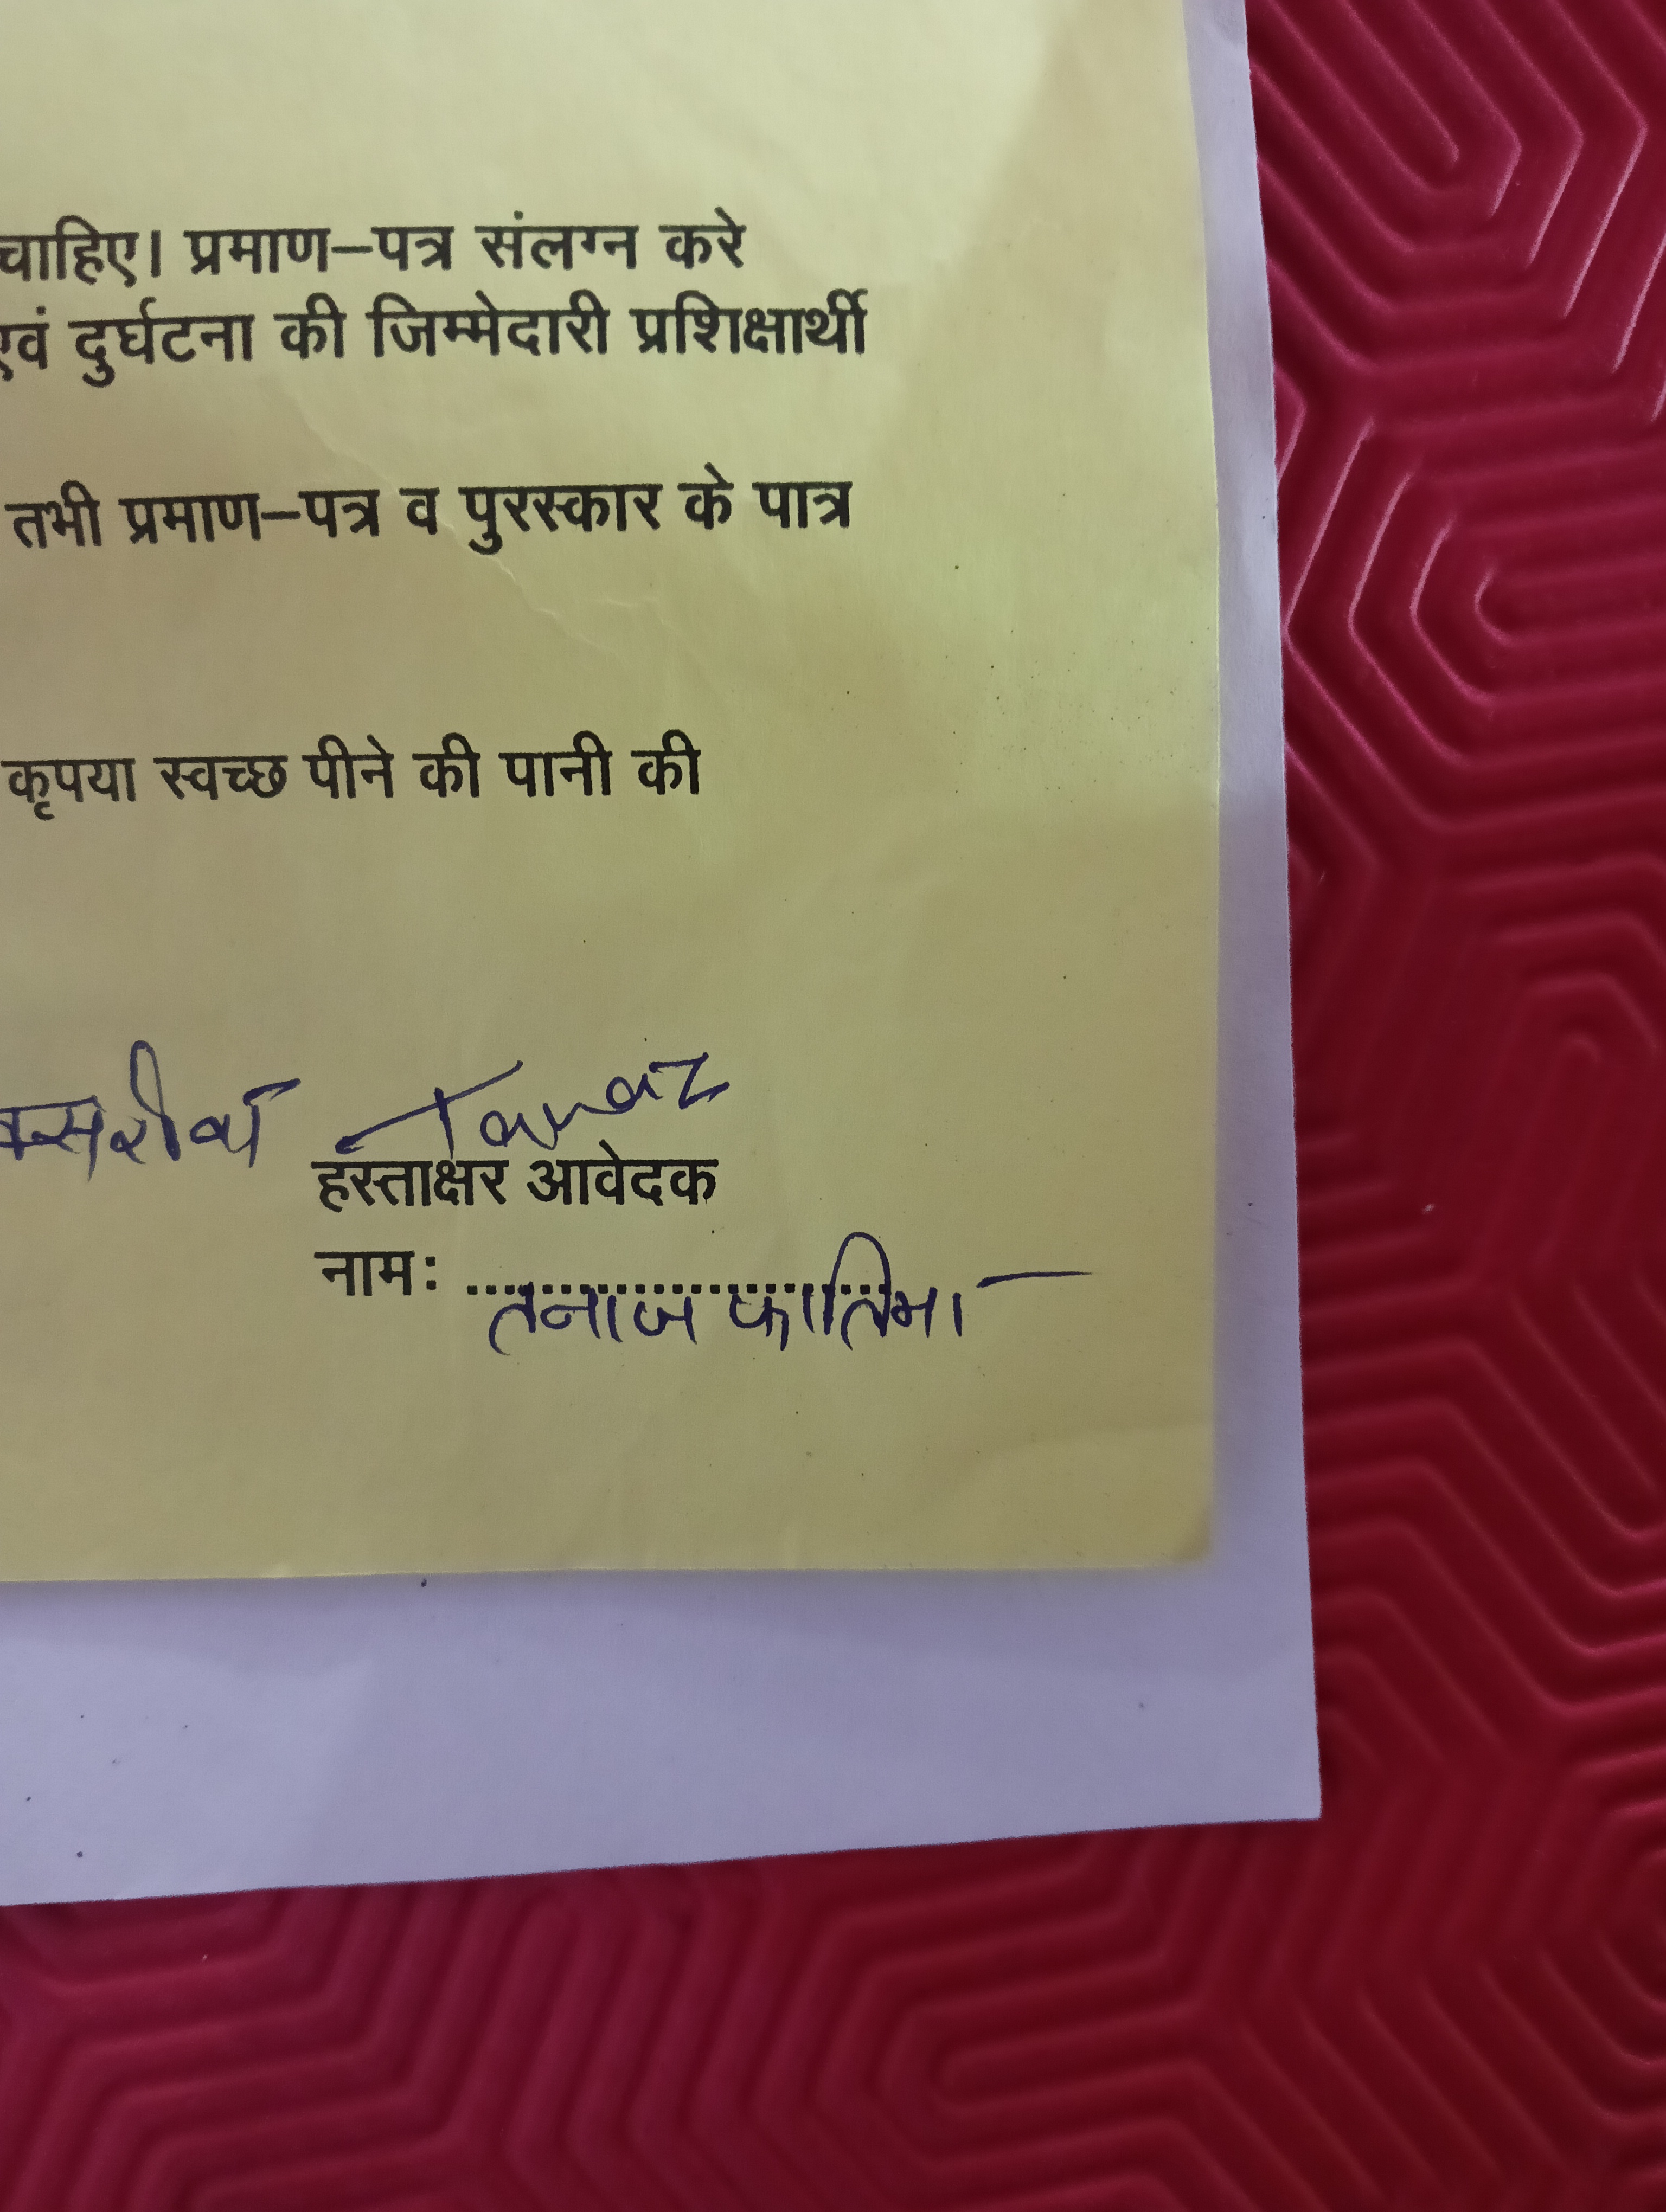 चाहिए। प्रमाण–पत्र संलग्न करे
एवं दुर्घटना की जिम्मेदारी प्रशिक्षार्थी
तभी प्रमाण–पत्र व पुरस्कार के पात्र
कृपया स्वच्छ पीने की पानी की
Tanaz
हस्ताक्षर आवेदक
नामः तनाज फातिमा